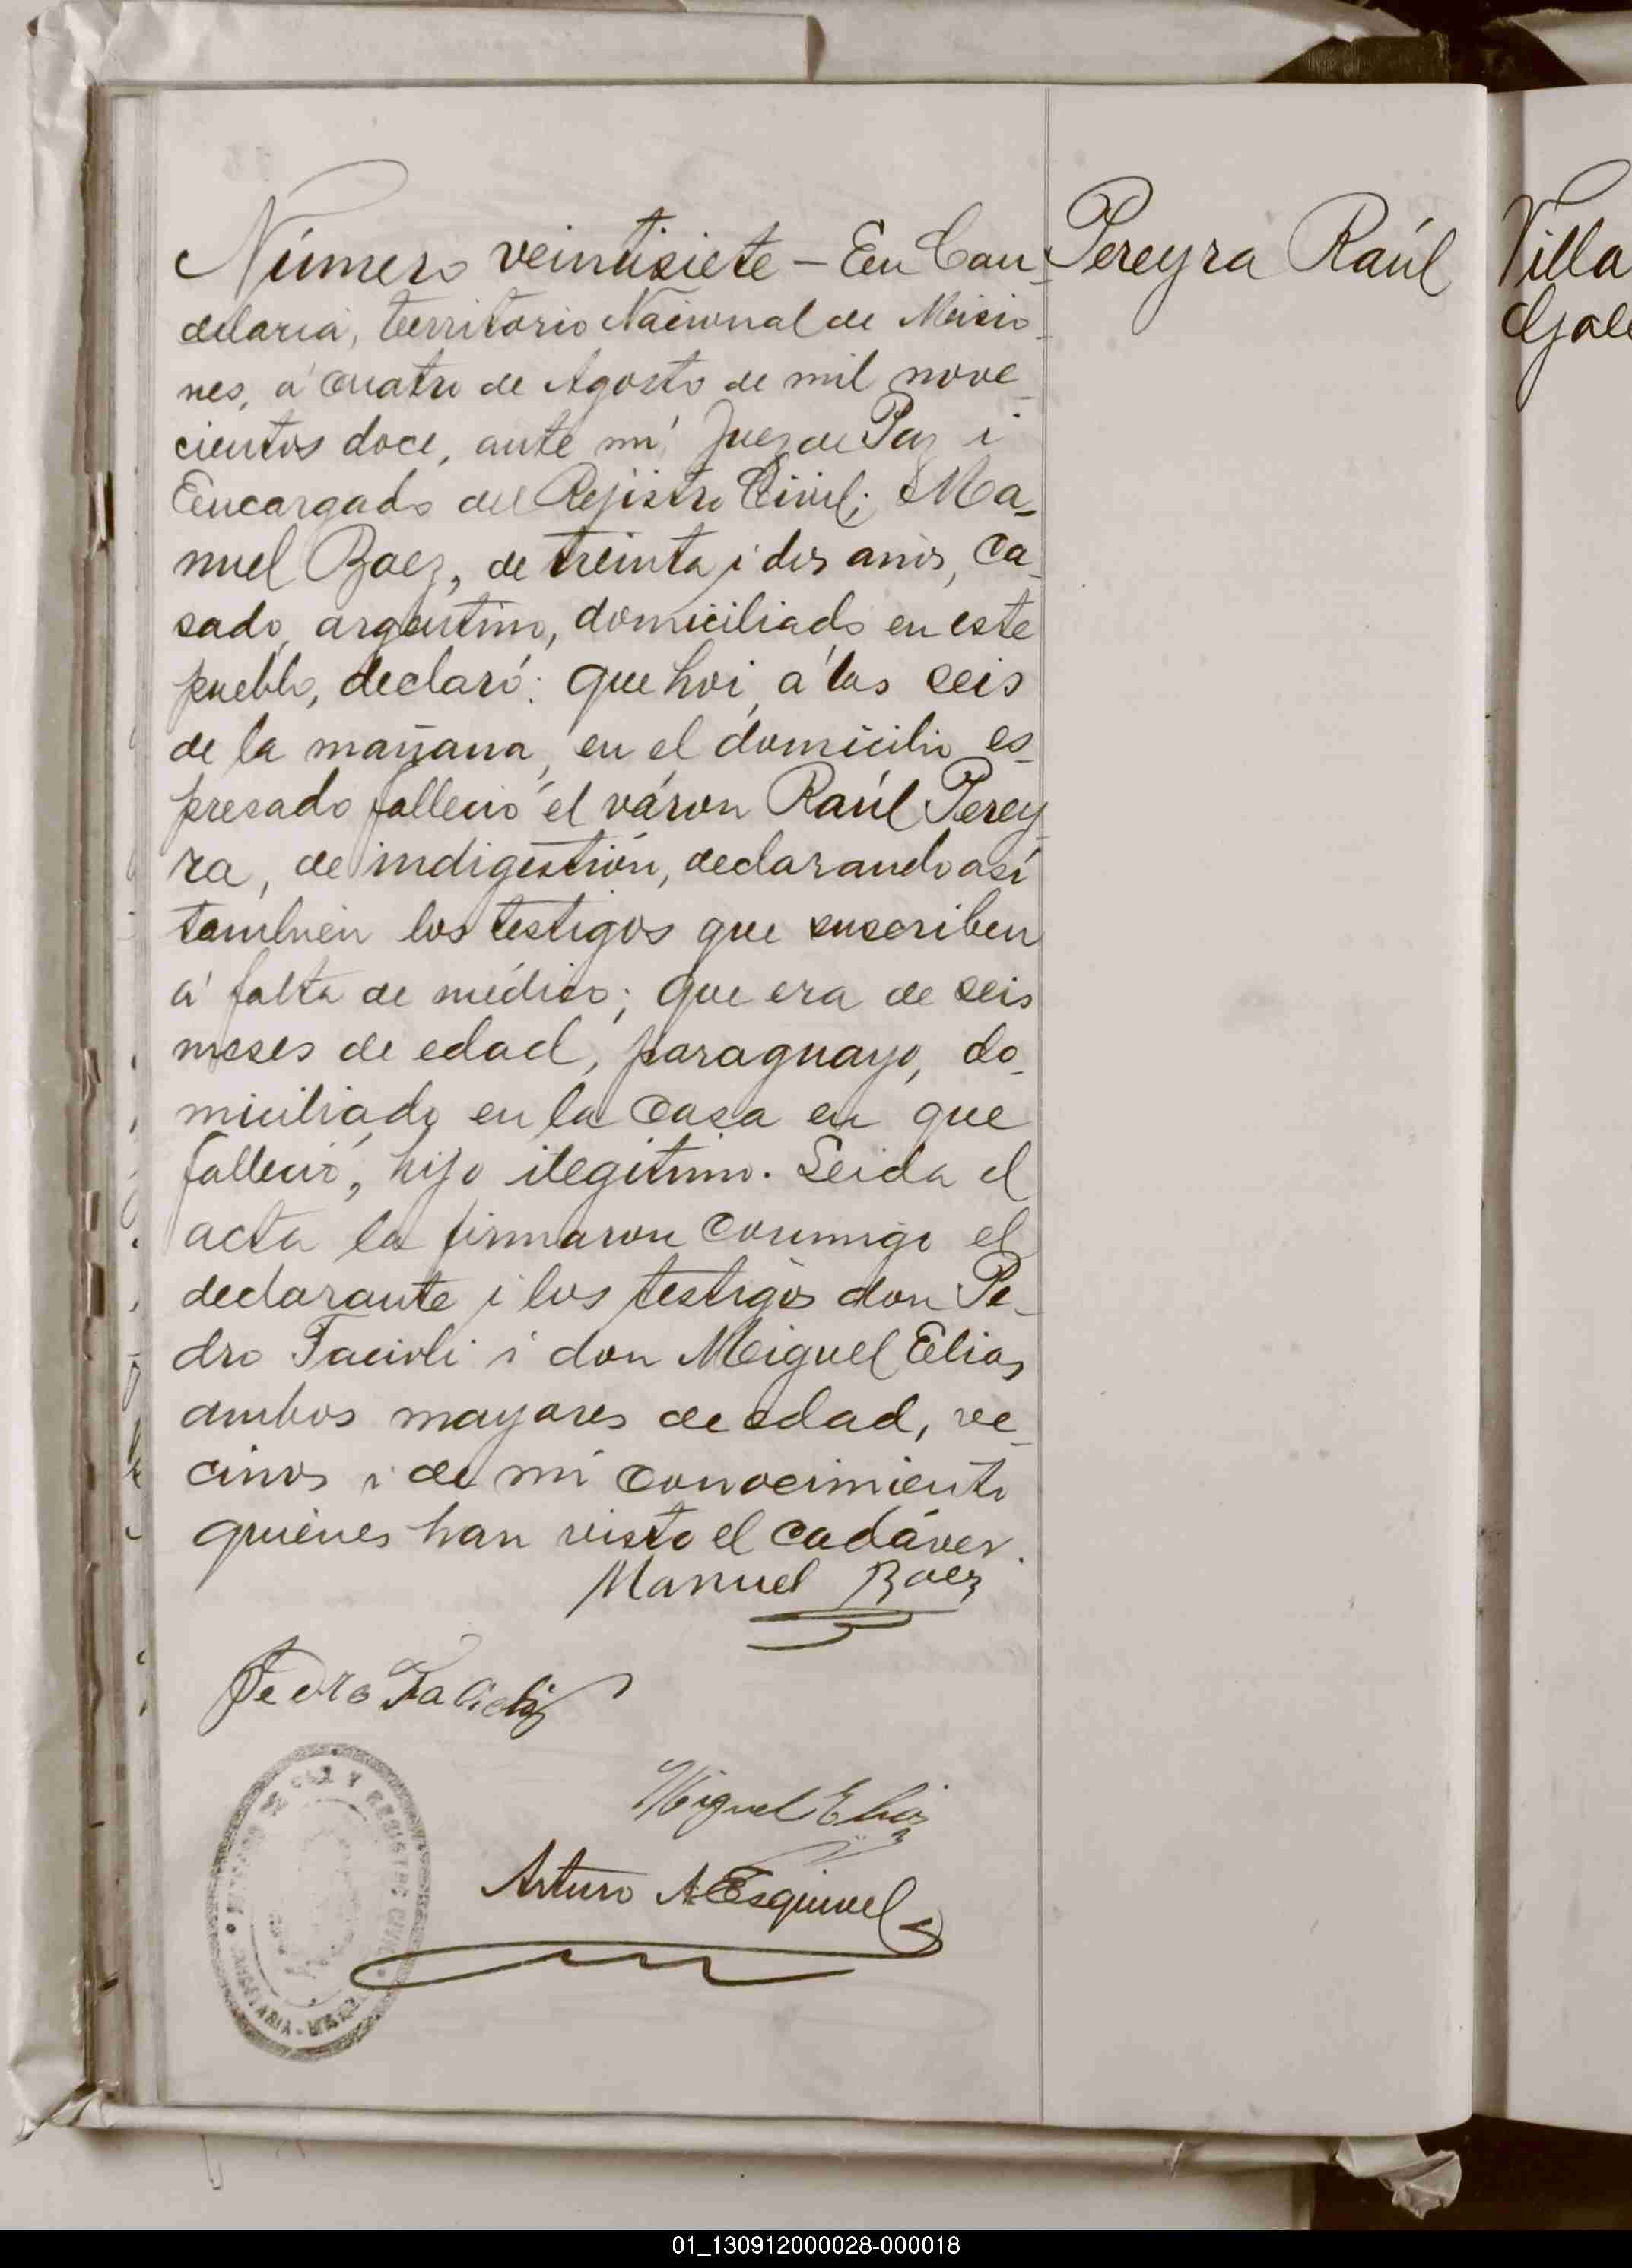 Número veintisiete – En Can-
delaria, territorio Nacional de Misio-
nes, á cuatro de Agosto de mil nove-
cientos doce, ante mí, Juez de Paz i
Encargado del Rejistro Civil; Ma-
nuel Baez, de treinta i dos anós, ca-
sado, argentino, domiciliado en este
pueblo, declaró: que hoi, á las seis
de la mañana, en el domicilio es-
presado falleció el váron Raúl Perey-
ra, de indigestión, declarando así
también los testigos que suscriben
á falta de médico; que era de seis
meses de edad, paraguayo, do-
miciliado en la casa en que
falleció, hijo ilegitimo. Leida el
acta la firmaron conmigo el
declarante i los testigos don Pe-
dro Facioli i don Miguel Elias
ambos mayores de edad, ve-
cinos i de mi conocimiento
quiénes han visto el cadáver.
Manuel Baez
Pedro Facioli
Miguel Elias
Arturo A Esquivel
Pereyra Raúl
Villa
REGISTRO CIVIL
01_130912000028-000018